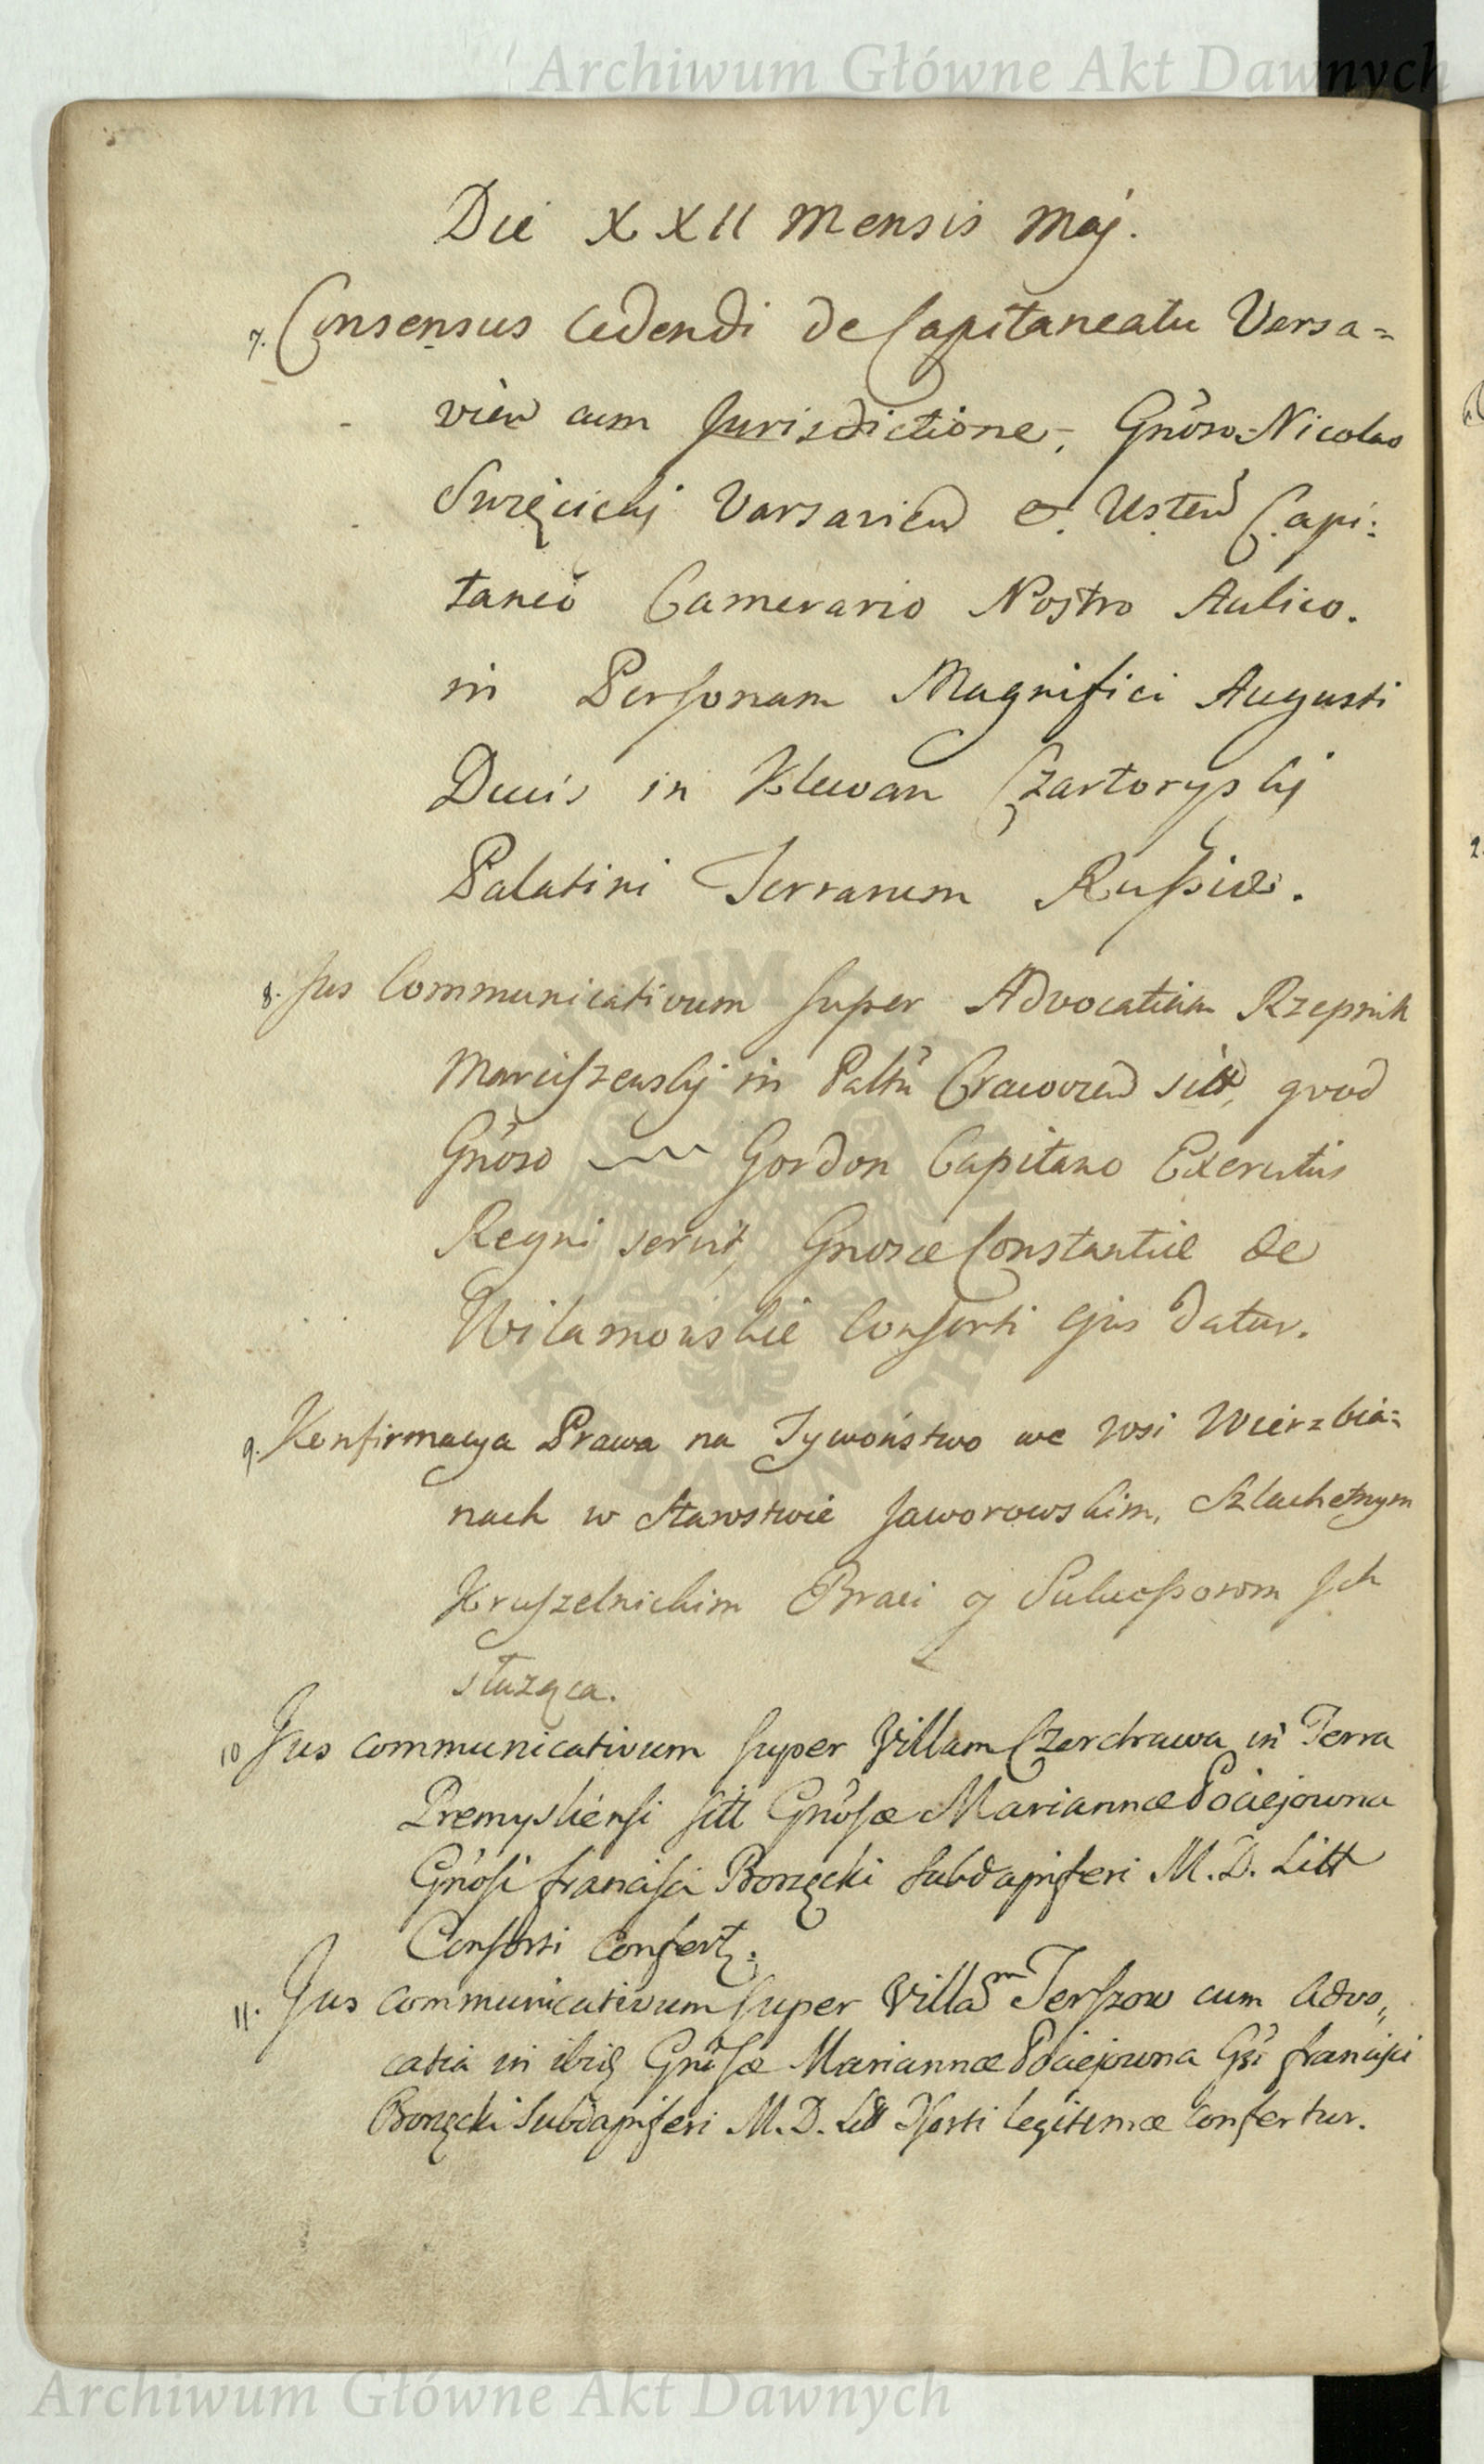 Archiwum Główne Akt Dawnych
Die XXII Mensis Maj.
7. Consensus Cedendi de Capitaneatu Varsa=
vien cum Jurisdictione, Gnoso Nicolao
Swięcickj Varsavien & Usten Capi:
taneo Camerario Nostro Aulico.
in Personam Magnifici Augusti
Ducis in Klewan Czartoryskj
Palatini Terrarum Russiæ.
8. Jus Communicativum super Advocatiam Rzepnik
Marciszewskj in Palttu Cracovien sitt, quod
Gnoso Gordon Capitano Exercitus
Regni servit, Gnosæ Constantiæ de
Wilamowskie Consorti Ejus Datur.
9. Konfirmacya Prawa na Tywoństwo we Wsi Wierzbia=
nach w Starostwie Jaworowskim, Szlachetnym
Kruszelnickim Braci y Sukcessorom Jch
służąca.
10 Jus communicativum super Villam Czerchawa in Terra
Premysliensi sitt Gnosæ Mariannæ Pociejowna
Gnosi francisci Borzęcki Subdapiferi M. D. Litt
Consorti Confert.
11. Jus communicativum super Villam Terszow cum Advo„
catia in ibid Gnosæ Mariannæ Pociejowna Gsi francisci
Borzęcki Subdapiferi M. D. Litt Csorti legitimæ Confertur.
Archiwum Główne Akt Dawnych